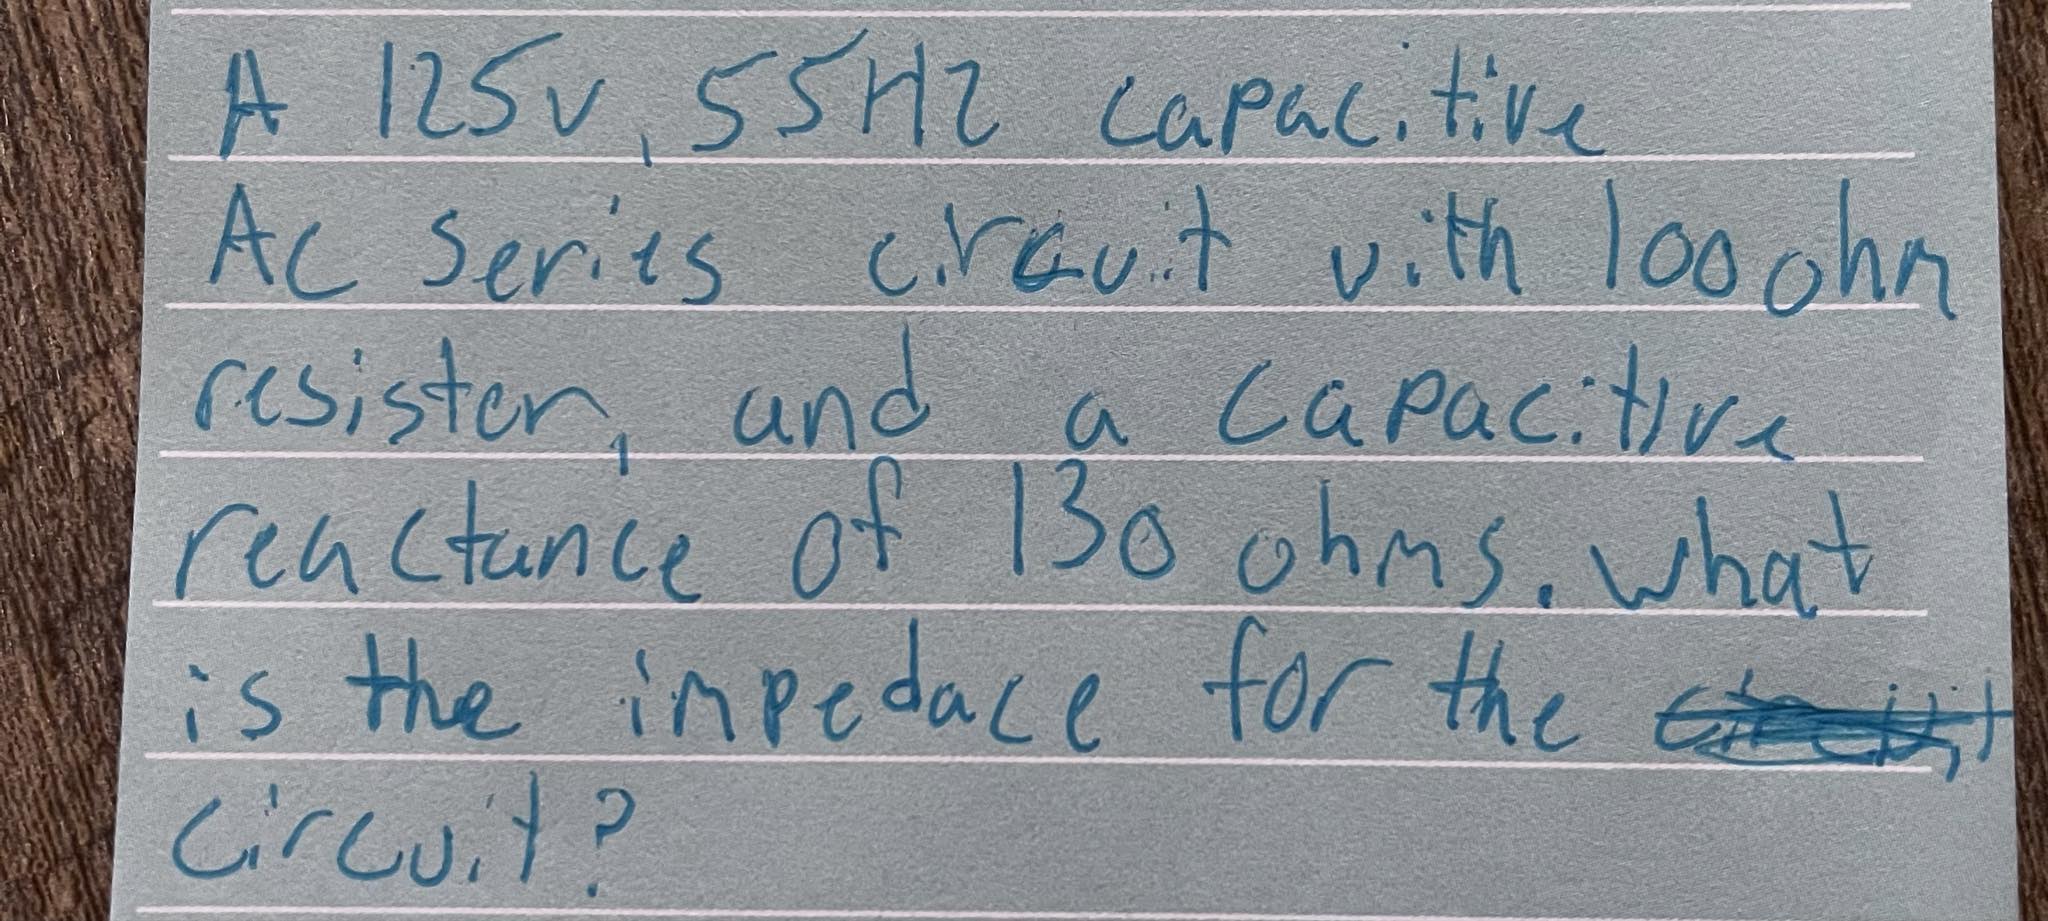 A 125v, 55Hz capacitive
AC series circuit with 100 ohm
resister, and a capacitive
reactance of 130 ohms. what
is the impedace for the
circuit?